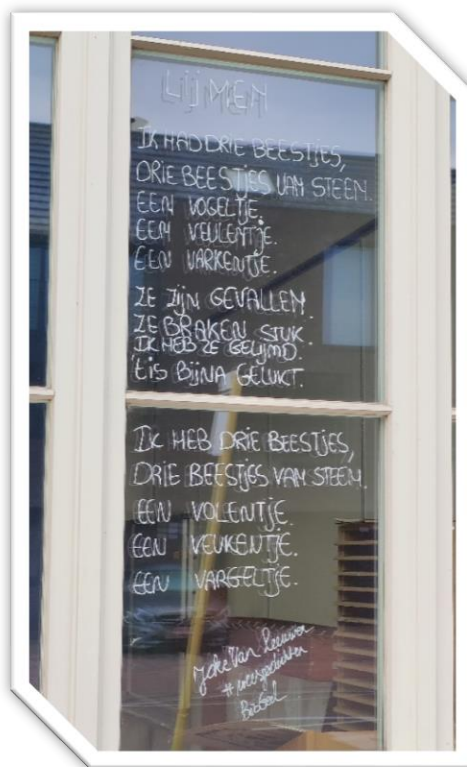 LIJMEN
IK HAD DRIE BEESTJES,
DRIE BEESTJES VAN STEEN.
EEN VOGELTJE.
EEN VEULENTJE.
EEN VARKENTJE.
ZE ZIJN GEVALLEN.
ZE BRAKEN STUK.
IK HEB ZE GELIJMD.
'T IS BIJNA GELUKT.
IK HEB DRIE BEESTJES,
DRIE BEESTJES VAN STEEN.
EEN VOLENTJE.
EEN VEUKENTJE.
EEN VARGELTJE.
Joke Van Leeuwen
#